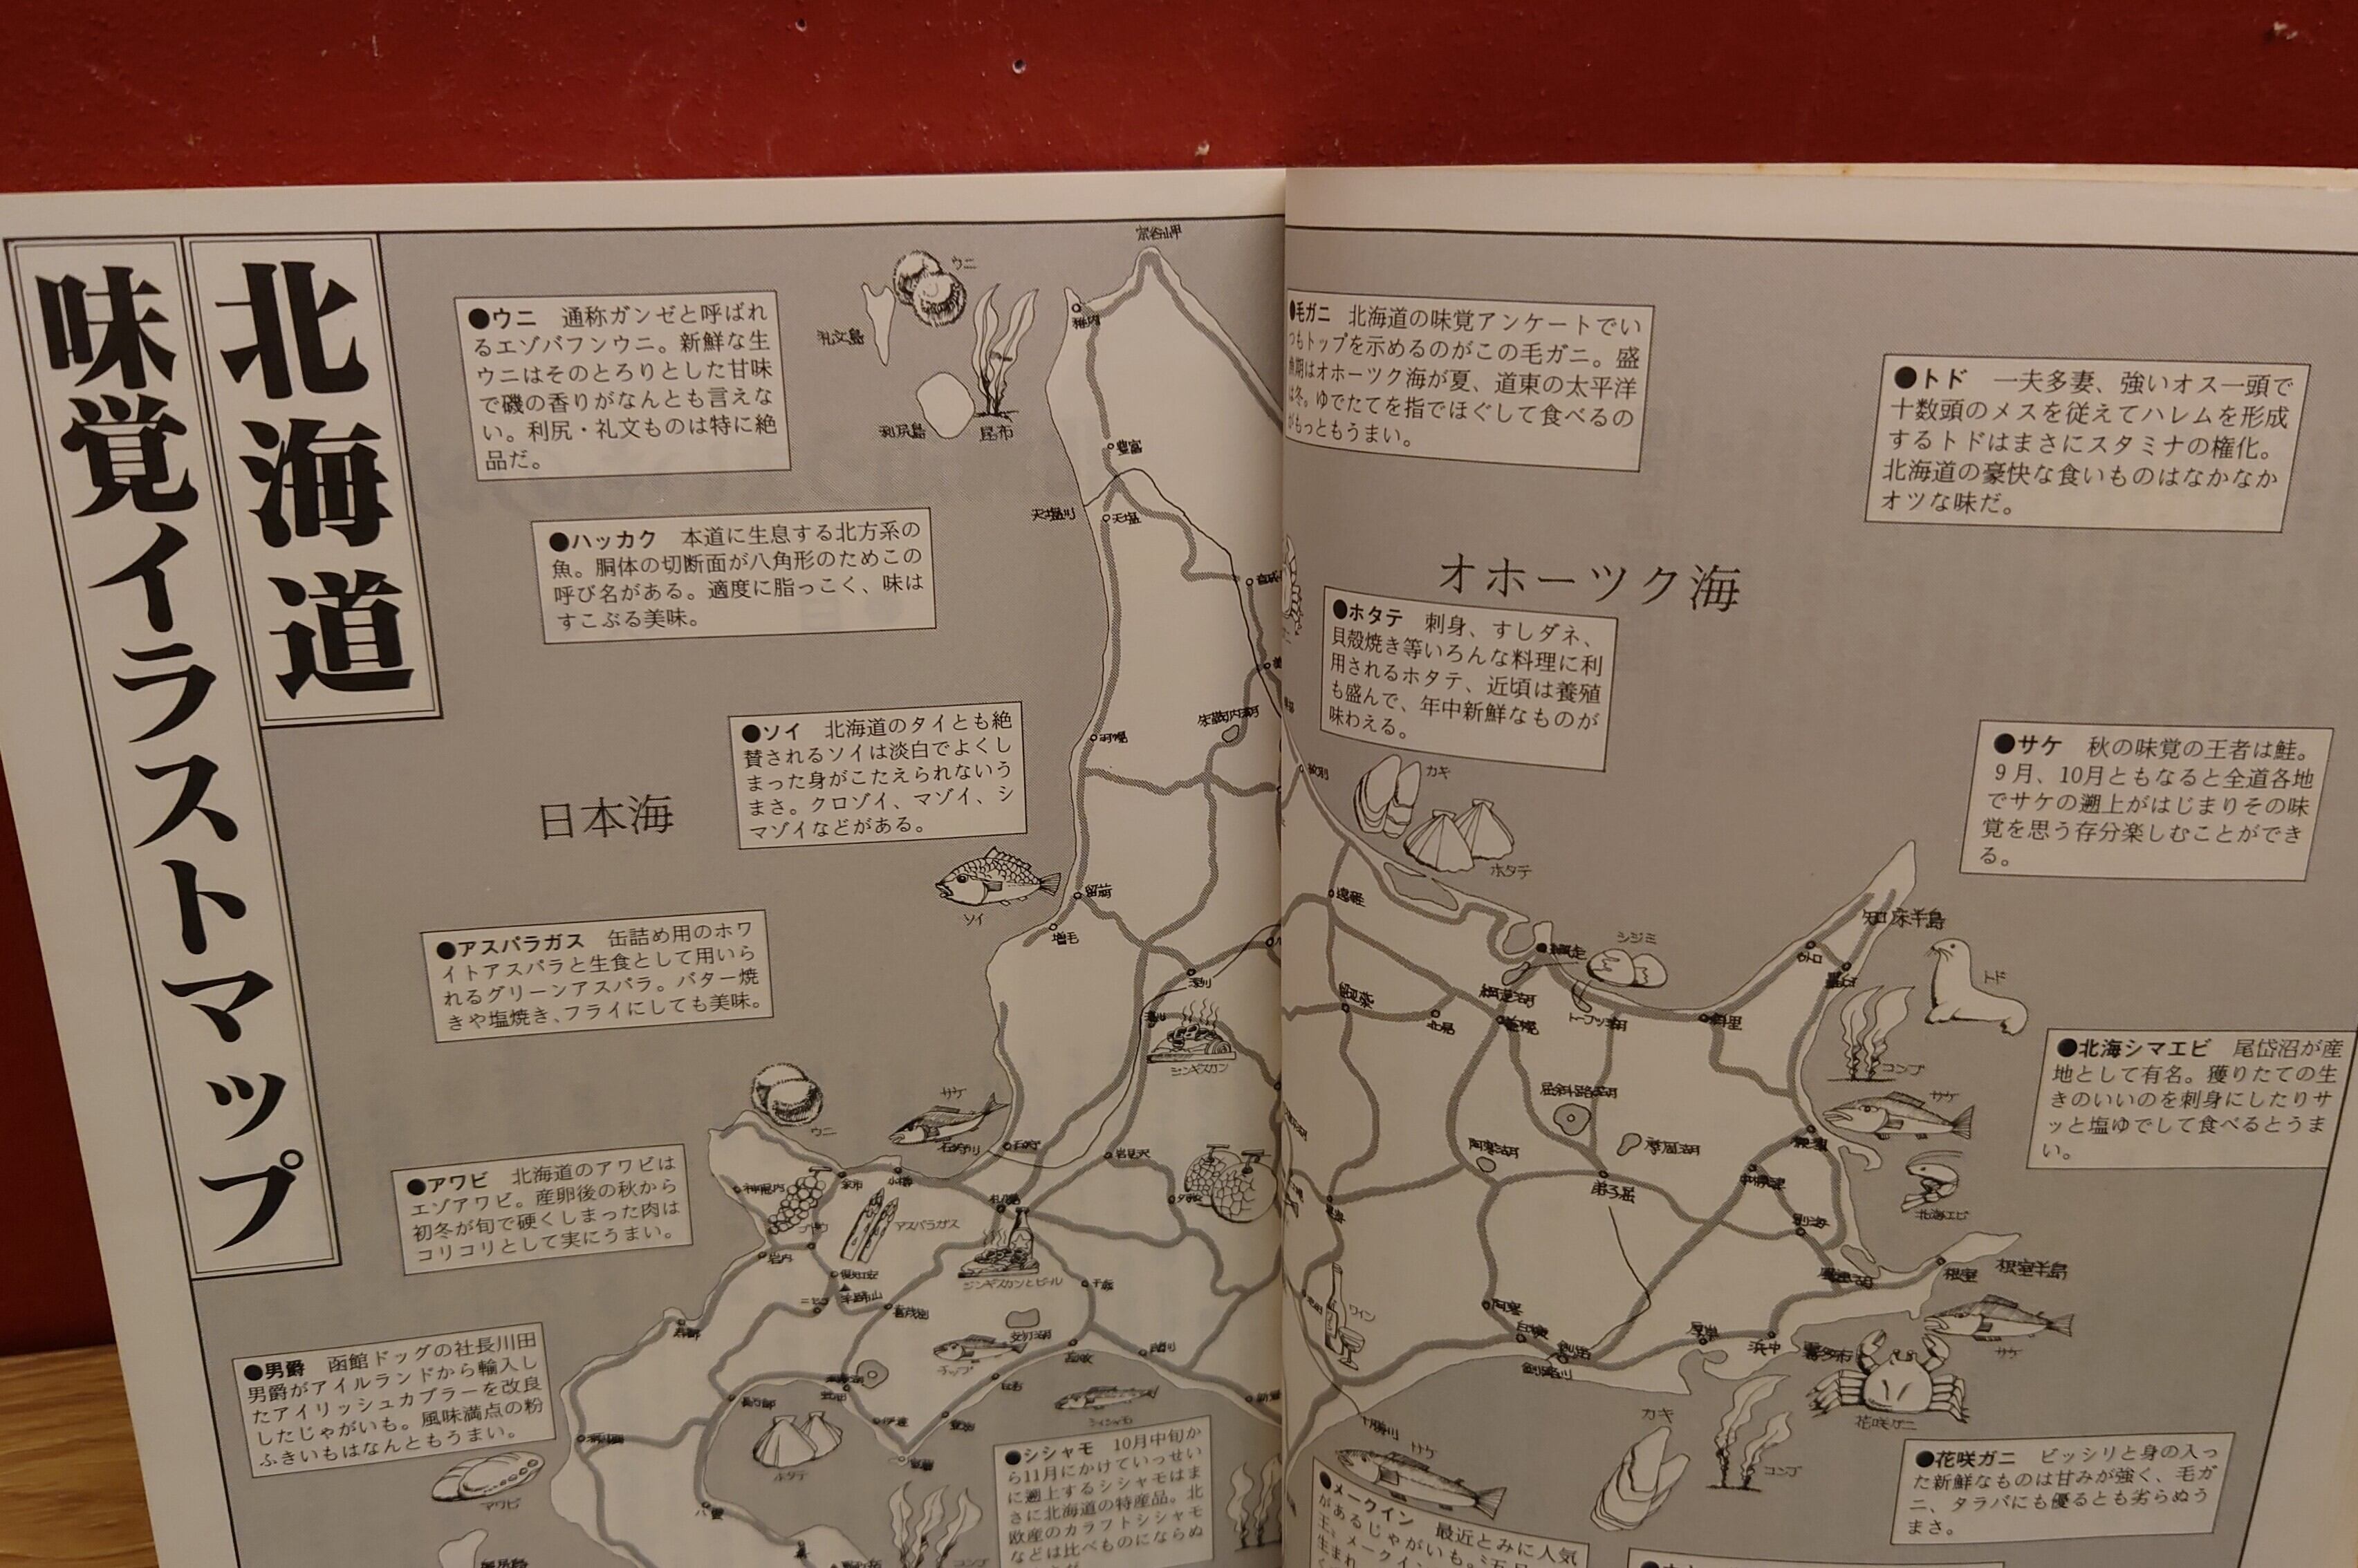 北海道
味覚イラストマップ
●ウニ 通称ガンゼと呼ばれ
るエゾバフンウニ。新鮮な生
ウニはそのとろりとした甘味
で磯の香りがなんとも言えな
い。利尻・礼文ものは特に絶
品だ。
●ハッカク 本道に生息する北方系の
魚。胴体の切断面が八角形のためこの
呼び名がある。適度に脂っこく、味は
すこぶる美味。
●ソイ 北海道のタイとも絶
賛されるソイは淡白でよくし
まった身がこたえられないう
まさ。クロゾイ、マゾイ、シ
マゾイなどがある。
日本海
●アスパラガス 缶詰め用のホワ
イトアスパラと生食として用いら
れるグリーンアスパラ。バター焼
きや塩焼き、フライにしても美味。
●アワビ 北海道のアワビは
エゾアワビ。産卵後の秋から
初冬が旬で硬くしまった肉は
コリコリとして実にうまい。
●男爵 函館ドッグの社長川田
男爵がアイルランドから輸入し
たアイリッシュカブラーを改良
したじゃがいも。風味満点の粉
ふきいもはなんともうまい。
●シシャモ 10月中旬か
ら11月にかけていっせい
に遡上するシシャモはま
さに北海道の特産品。北
欧産のカラフトシシャモ
などは比べものにならぬ
宗谷岬
ウニ
礼文島
利尻島
昆布
稚内
豊富
天塩川
天塩
朱鞠内湖
羽幌
留萌
ソイ
増毛
深川
ジンギスカン
サケ
ウニ
石狩川
石狩
岩見沢
神恵内
余市
小樽
札幌
夕張
ブドウ
アスパラガス
岩内
倶知安
羊蹄山
ニセコ
喜茂別
ジンギスカンとビール
千歳
支笏湖
チップ
苫小牧
鵡川
白老
登別
伊達
室蘭
長万部
ホタテ
シシャモ
八雲
コンブ
●毛ガニ 北海道の味覚アンケートでい
つもトップを示めるのがこの毛ガニ。盛
漁期はオホーツク海が夏、道東の太平洋
は冬。ゆでたてを指でほぐして食べるの
がもっともうまい。
●トド 一夫多妻、強いオス一頭で
十数頭のメスを従えてハレムを形成
するトドはまさにスタミナの権化。
北海道の豪快な食いものはなかなか
オツな味だ。
オホーツク海
●ホタテ 刺身、すしダネ、
貝殻焼き等いろんな料理に利
用されるホタテ、近頃は養殖
も盛んで、年中新鮮なものが
味わえる。
●サケ 秋の味覚の王者は鮭。
9月、10月ともなると全道各地
でサケの遡上がはじまりその味
覚を思う存分楽しむことができ
る。
●北海シマエビ 尾岱沼が産
地として有名。獲りたての生
きのいいのを刺身にしたりサ
ッと塩ゆでして食べるとうま
い。
●花咲ガニ ビッシリと身の入っ
た新鮮なものは甘みが強く、毛ガ
ニ、タラバにも優るとも劣らぬう
まさ。
●メークイン 最近とみに人気
があるじゃがいも。
紋別
カキ
ホタテ
遠軽
網走
シジミ
網走湖
美幌
北見
トーフツ湖
斜里
知床半島
羅臼
トド
コンブ
サケ
北海エビ
屈斜路湖
摩周湖
阿寒湖
弟子屈
中標津
標津
別海
風蓮湖
根室
根室半島
サケ
ワイン
阿寒
白糠
釧路
釧路川
厚岸
浜中
花咲ガニ
カキ
コンブ
十勝川
サケ